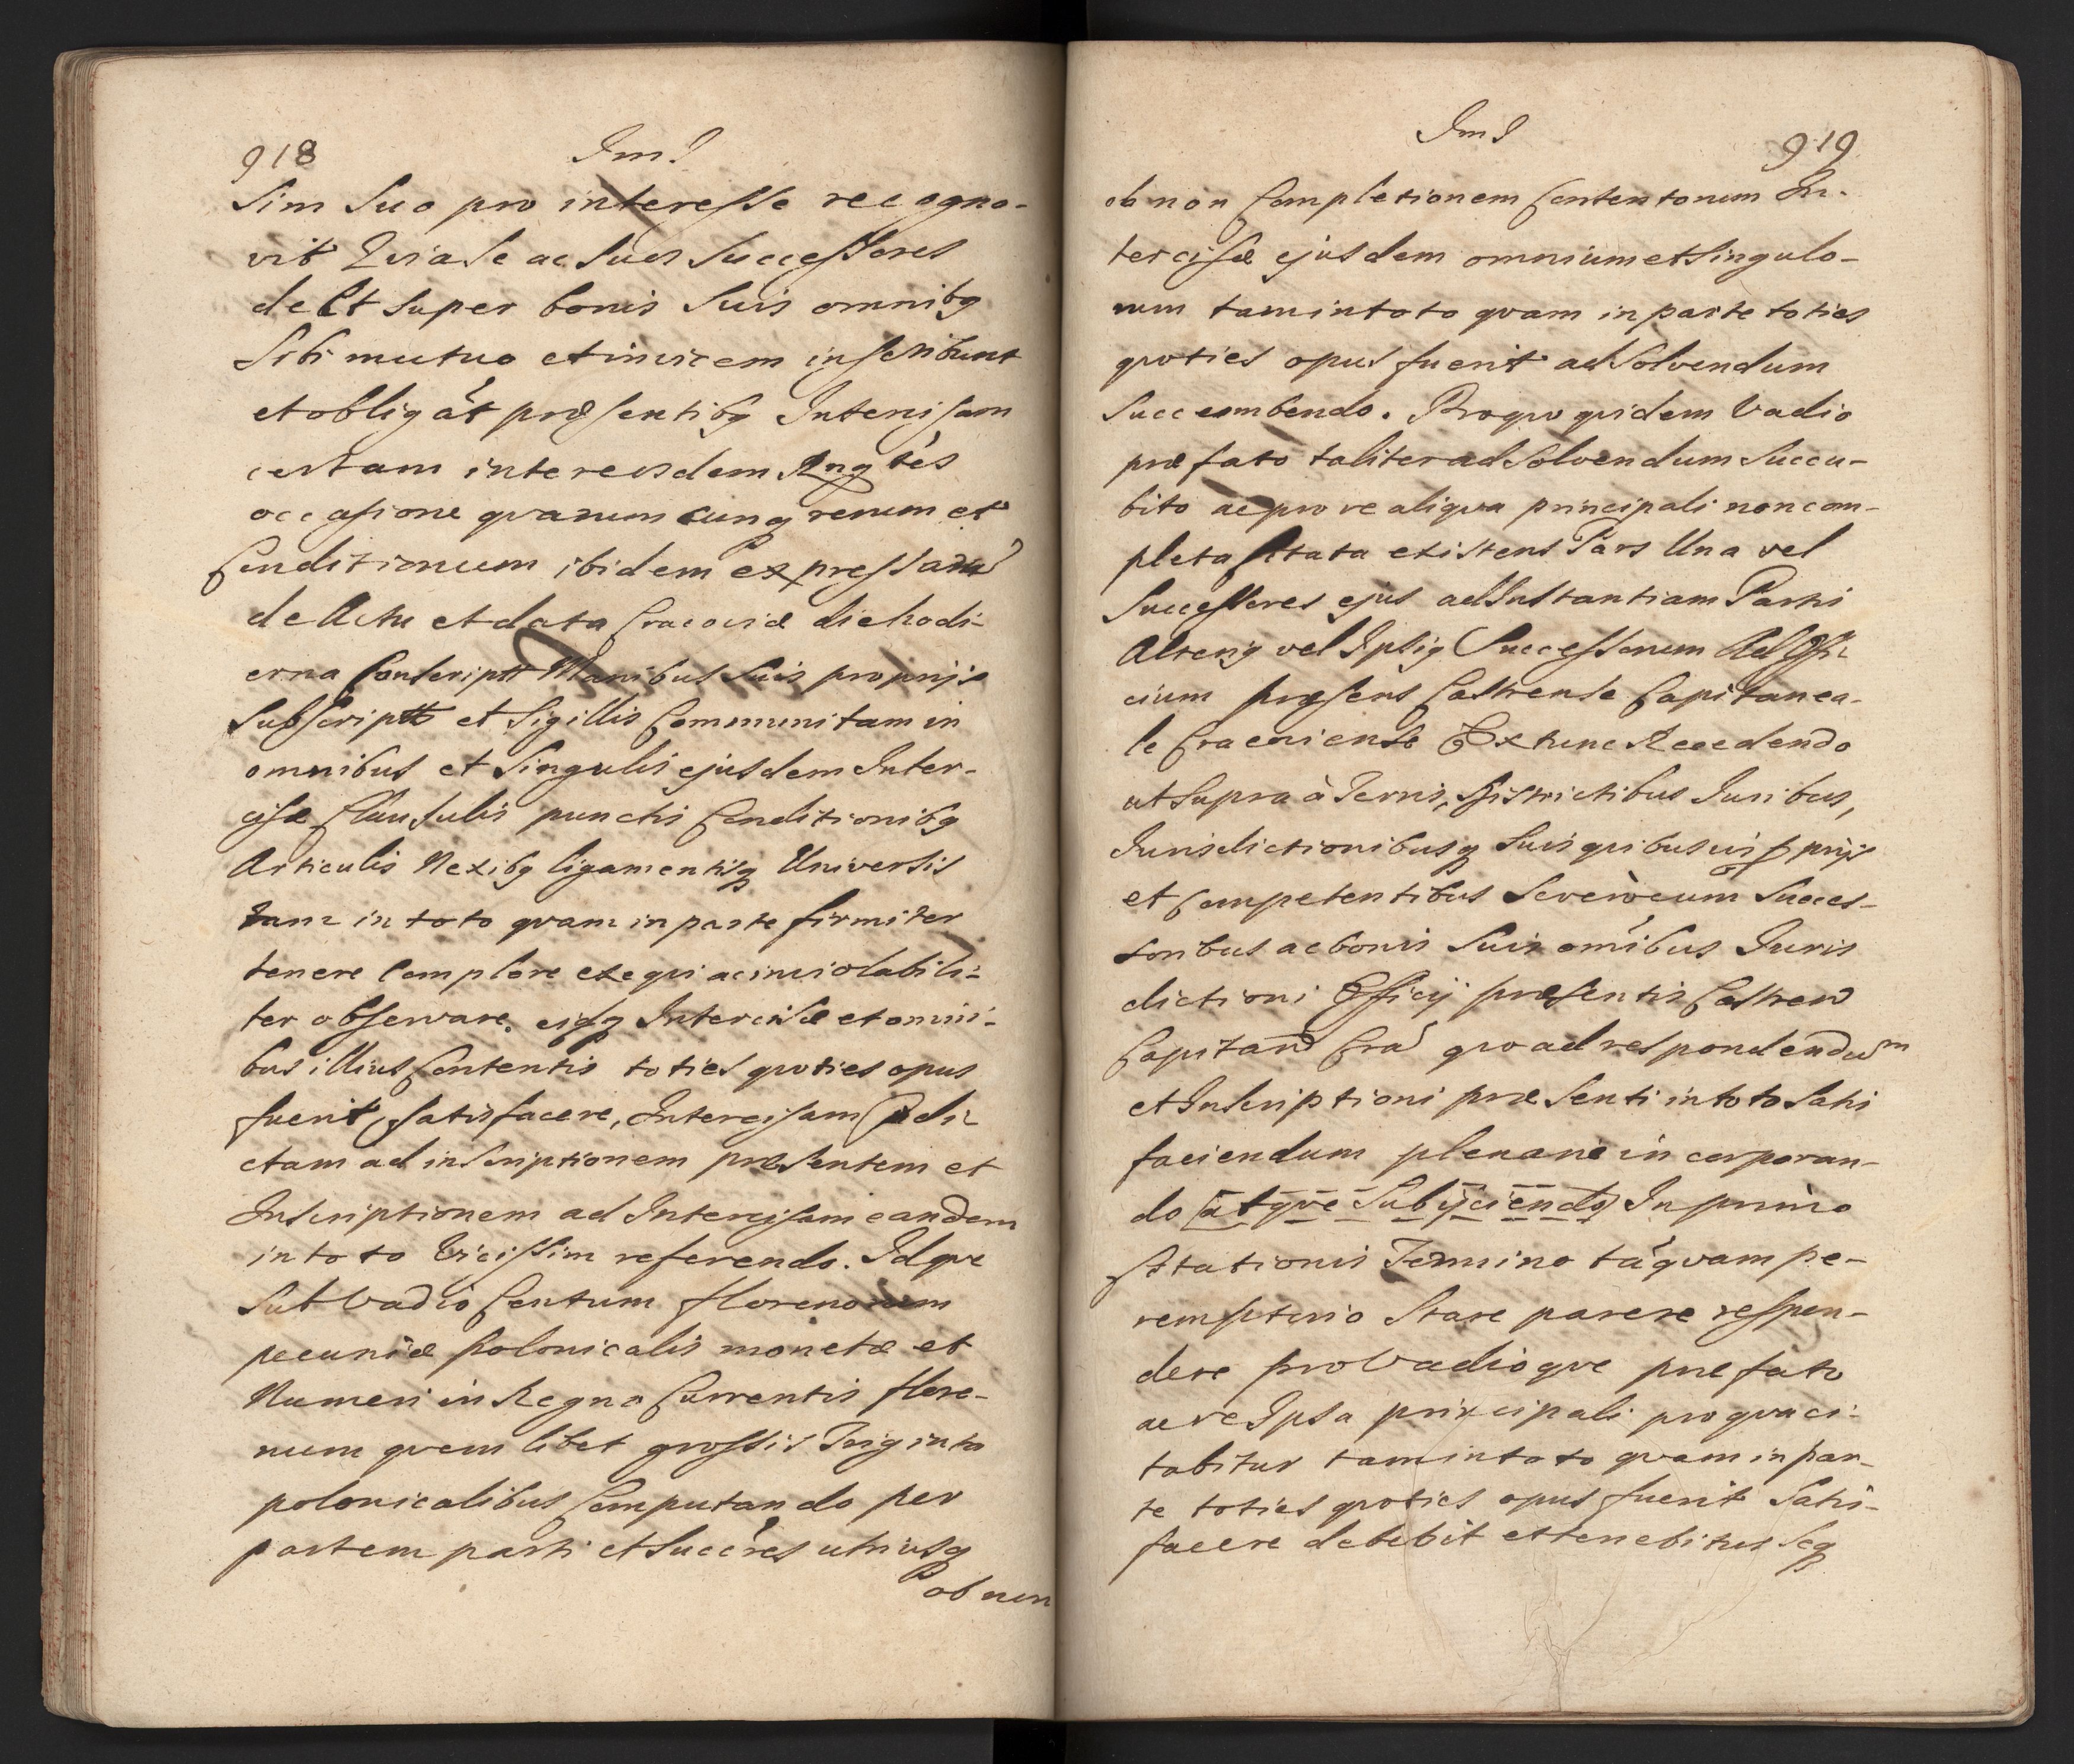 918 Im I
Sim Suo pro interesse recogno-
vit Quia Se ac Suos Successores
de Et Super bonis Suis omnibq
Sibi mutuo et invicem inscribunt
et obligát præsentibq Intercisam
certam inter eosdem Rngtés
occasione quarumcunq rerum et
Conditionum ibidem expressarũ
de Actu et data Cracoviæ die hodi-
erna Conscriptt Manibus Suis proprijs
Subscriptt et Sigillis Communitam in
omnibus et Singulis ejusdem Inter-
cisæ Clausulis punctis Conditionibq
Articulis Nexibq ligamentisq Universis
tam in toto qvam in parte firmiter
tenere Complere exequi ac inviolabili-
ter observare, eisdq Intercisæ et omni-
bus illius Contentis toties qvoties opus
fuerit, Satisfacere, Intercisam Pdi-
ctam ad inscriptionem præsentem et
Inscriptionem ad Intercisam eandem
in toto Vicissim referendo. Idqve
Sub Vadio Centum florenorum
pecuniæ polonicalis monetæ et
Numeri in Regno Currentis flore-
num qvem libet grossis Triginta
polonicalibus Computando per
partem parti et Succóres utriusq
ob non
Im I 919
ob non Completionem Contentorum In-
tercisæ ejusdem omnium et Singulo-
rum tam in toto qvam in parte toties
qvoties opus fuerit ad Solvendum
Succumbendo. Pro qvo qvidem Vadio
præfato taliter ad Solvendum Succu-
bito ac pro re aliqva principali non com-
pleta Citata existens Pars Una vel
Successores ejus ad Instantiam Partis
Alteriq vel Ipsiq Successorum Ad Offi-
cium præsens Castrense Capitanea-
le Cracoviense Extunc Recedendo
ut Supra à Terris, Districtibus Juribus,
Jurisdictionibusq Suis qvibusvis pprijs
et Competentibus Severò cum Succes-
soribus ac bonis Suis omíbus Juris
dictioni Officij præsentis Castreñ
Capitañ Crã qvo ad respondendum
et Inscriptioni præsenti in toto Satis
faciendum plenariè incorporan-
do atqve Subijciendo In primo
Citationis Termino táqvam pe-
remptorio Stare parere respon-
dere pro Vadioqve præfato
ac re Ipsa principali pro qva ci-
tabitur tam in toto qvam in par-
te toties qvoties opus fuerit Satis-
facere debebit et tenebitur Seq